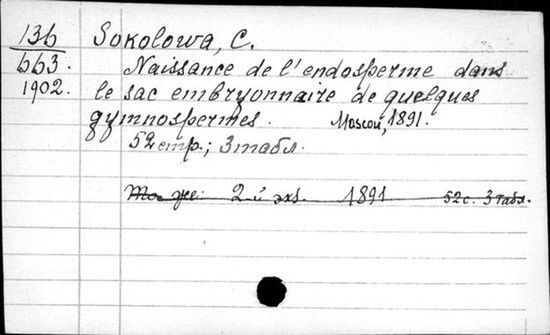 136 Sokolowa, C.
663. Naissance de l'endosperme dans
1902. le sac embryonnaire de quelques
gymnospermes. Moscou, 1891.
52 стр.; 3 табл.
То же 2-й экз. 1891 52 с. 3 табл.